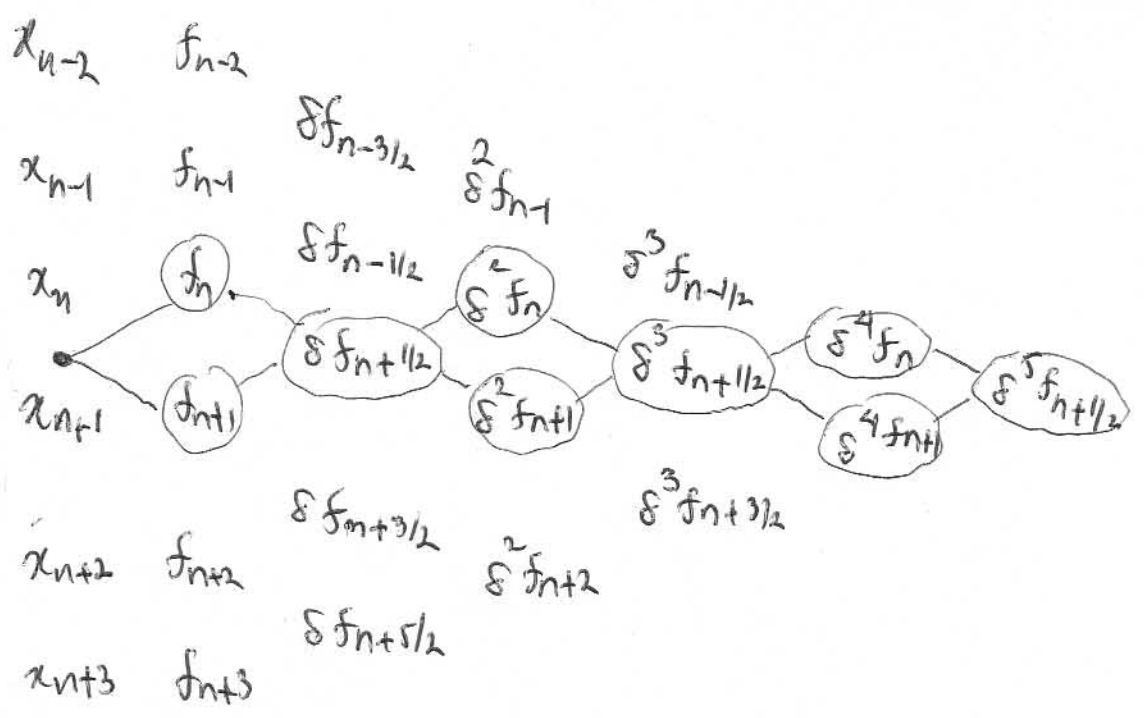 x_{n-2} f_{n-2}
δf_{n-3/2}
x_{n-1} f_{n-1} δ²f_{n-1}
δf_{n-1/2} δ³f_{n-1/2}
x_n f_n δ²f_n
δf_{n+1/2} δ³f_{n+1/2} δ⁴f_n δ⁵f_{n+1/2}
x_{n+1} f_{n+1} δ²f_{n+1} δ⁴f_{n+1}
δf_{n+3/2} δ³f_{n+3/2}
x_{n+2} f_{n+2} δ²f_{n+2}
δf_{n+5/2}
x_{n+3} f_{n+3}